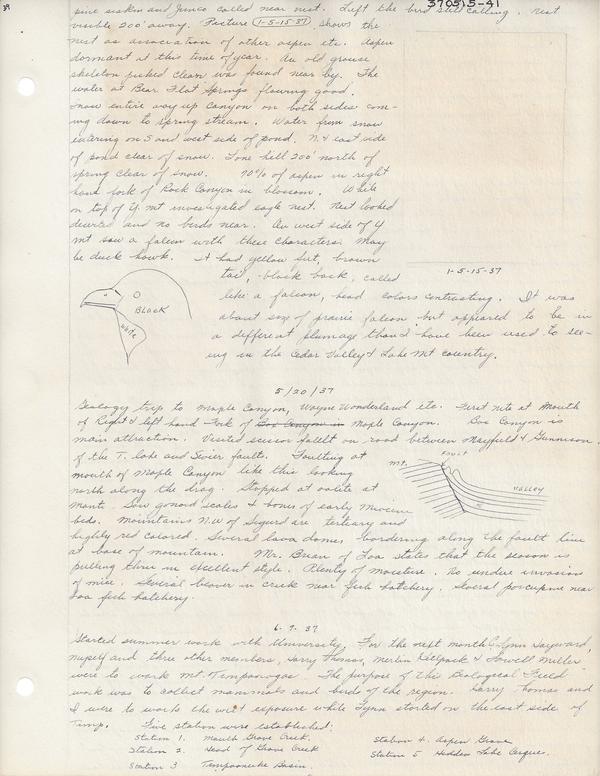 39
370515-41
pine siskin and Junco called near nest. Left the bird still calling. Nest
visible 200' away. Picture (1-5-15-37) shows the
nest as association of other aspen etc. Aspen
dormant at this time of year. An old grouse
skeleton picked clean was found near by. The
water at Bear Flat Springs flowing good.
Snow entire way up canyon on both sides com-
ing down to spring stream. Water from snow
entering on S and west side of pond. N. & east side
of pond clear of snow. Tone hill 200' north of
spring clear of snow. 90% of aspen in right
hand fork of Rock Canyon in blossom. While
on top of Y mt investigated eagle nest. Nest looked
deserted and no birds near. On west side of Y
mt saw a falcon with these characters. May
be duck hawk. It had yellow feet, brown
1-5-15-37
tail, black back, called
like a falcon, head colors contrasting. It was
about size of prairie falcon but appeared to be in
a different plumage than I have been used to see-
ing in the Cedar Valley & Lake Mt country.
BLACK
White
5/20/37
Geology trip to Maple Canyon, Wayne Wonderland etc. First nite at mouth
of Right & left hand Fork of Box Canyon in Maple Canyon. Box Canyon is
main attraction. Visited scissor fault on road between Mayfield & Gunnison
of the T. lake and Sevier faults. Faulting at
mouth of Maple Canyon like this looking
north along the drag. Stopped at oolite at
Manti. Saw ganoid scales & bones of early
beds. Mountains N.W of Sigurd are tertiary and
highly red colored. Several lava domes bordering along the fault line
at base of mountain. Mr. Brian of Loa states that the season is
pulling thru in excellent style. Plenty of moisture. No undue invasions
of mice. Several beaver in creek near fish hatchery. Several porcupine near
Loa fish hatchery.
Mt.
FAULT
VALLEY
6. 9. 37
Started summer work with University. For the next month C. Lynn Hayward,
myself and three other members, Harry Thomas, Merlin Killpack & Lowell Miller
were to work Mt. Timpanogos. The purpose of this Biological Field
work was to collect mammals and birds of the region. Harry Thomas and
I were to works the west exposure while Lynn started on the east side of
Timp. Five station were established:
Station 1. Mouth Grove Creek.
Station 2. Head of Grove Creek
Station 3 Timpooneke Basin.
Station 4. Aspen Grove
Station 5 Hidden Lake Cirque.